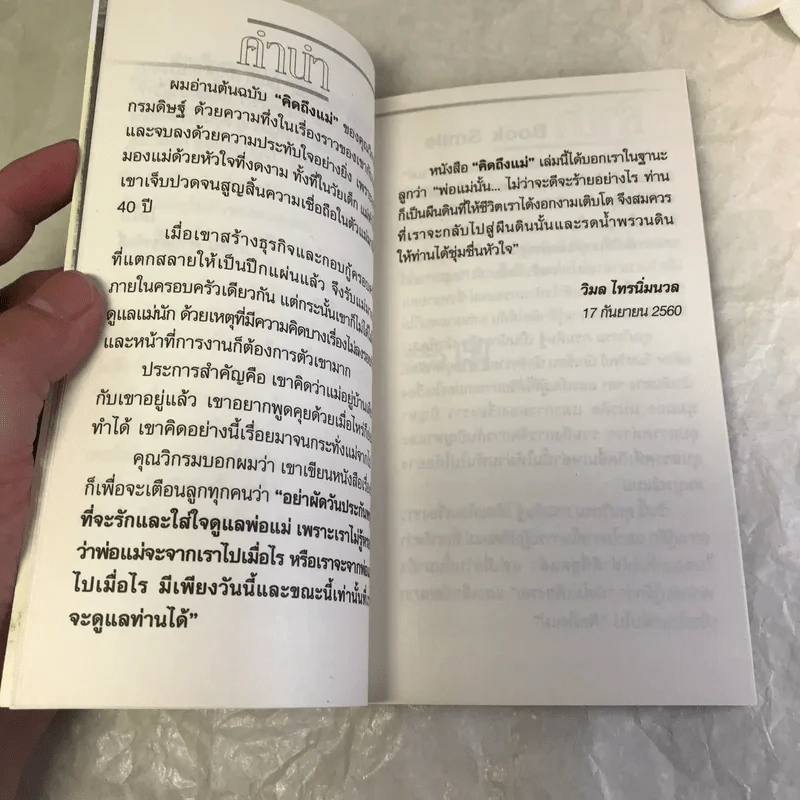 คำนำ
ผมอ่านต้นฉบับ “คิดถึงแม่” ของคุณ
กรมดิษฐ์ ด้วยความทึ่งในเรื่องราวของเขา
และจบลงด้วยความประทับใจอย่างยิ่ง
มองแม่ด้วยหัวใจที่งดงาม ทั้งที่ในวัยเด็ก
เขาเจ็บปวดจนสูญสิ้นความเชื่อถือในตัว
40 ปี
เมื่อเขาสร้างธุรกิจและกอบกู้
ที่แตกสลายให้เป็นปึกแผ่นแล้ว จึงรับแม่
ภายในครอบครัวเดียวกัน แต่กระนั้นเขาก็ไม่
ดูแลแม่นัก ด้วยเหตุที่มีความคิดบางเรื่อง
และหน้าที่การงานก็ต้องการตัวเขามาก
ประการสำคัญคือ เขาคิดว่าแม่อยู่บ้าน
กับเขาอยู่แล้ว เขาอยากพูดคุยด้วยเมื่อไหร่
ทำได้ เขาคิดอย่างนี้เรื่อยมาจนกระทั่งแม่จาก
คุณวิกรมบอกผมว่า เขาเขียนหนังสือ
ก็เพื่อจะเตือนลูกทุกคนว่า “อย่าผัดวันประกัน
ที่จะรักและใส่ใจดูแลพ่อแม่ เพราะเราไม่รู้
ว่าพ่อแม่จะจากเราไปเมื่อไร หรือเราจะจาก
ไปเมื่อไร มีเพียงวันนี้และขณะนี้เท่านั้น
จะดูแลท่านได้”
หนังสือ “คิดถึงแม่” เล่มนี้ได้บอกเราในฐานะ
ลูกว่า “พ่อแม่นั้น... ไม่ว่าจะดีจะร้ายอย่างไร ท่าน
ก็เป็นผืนดินที่ให้ชีวิตเราได้งอกงามเติบโต จึงสมควร
ที่เราจะกลับไปสู่ผืนดินนั้นและรดน้ำพรวนดิน
ให้ท่านได้ชุ่มชื่นหัวใจ”
วิมล ไทรนิ่มนวล
17 กันยายน 2560